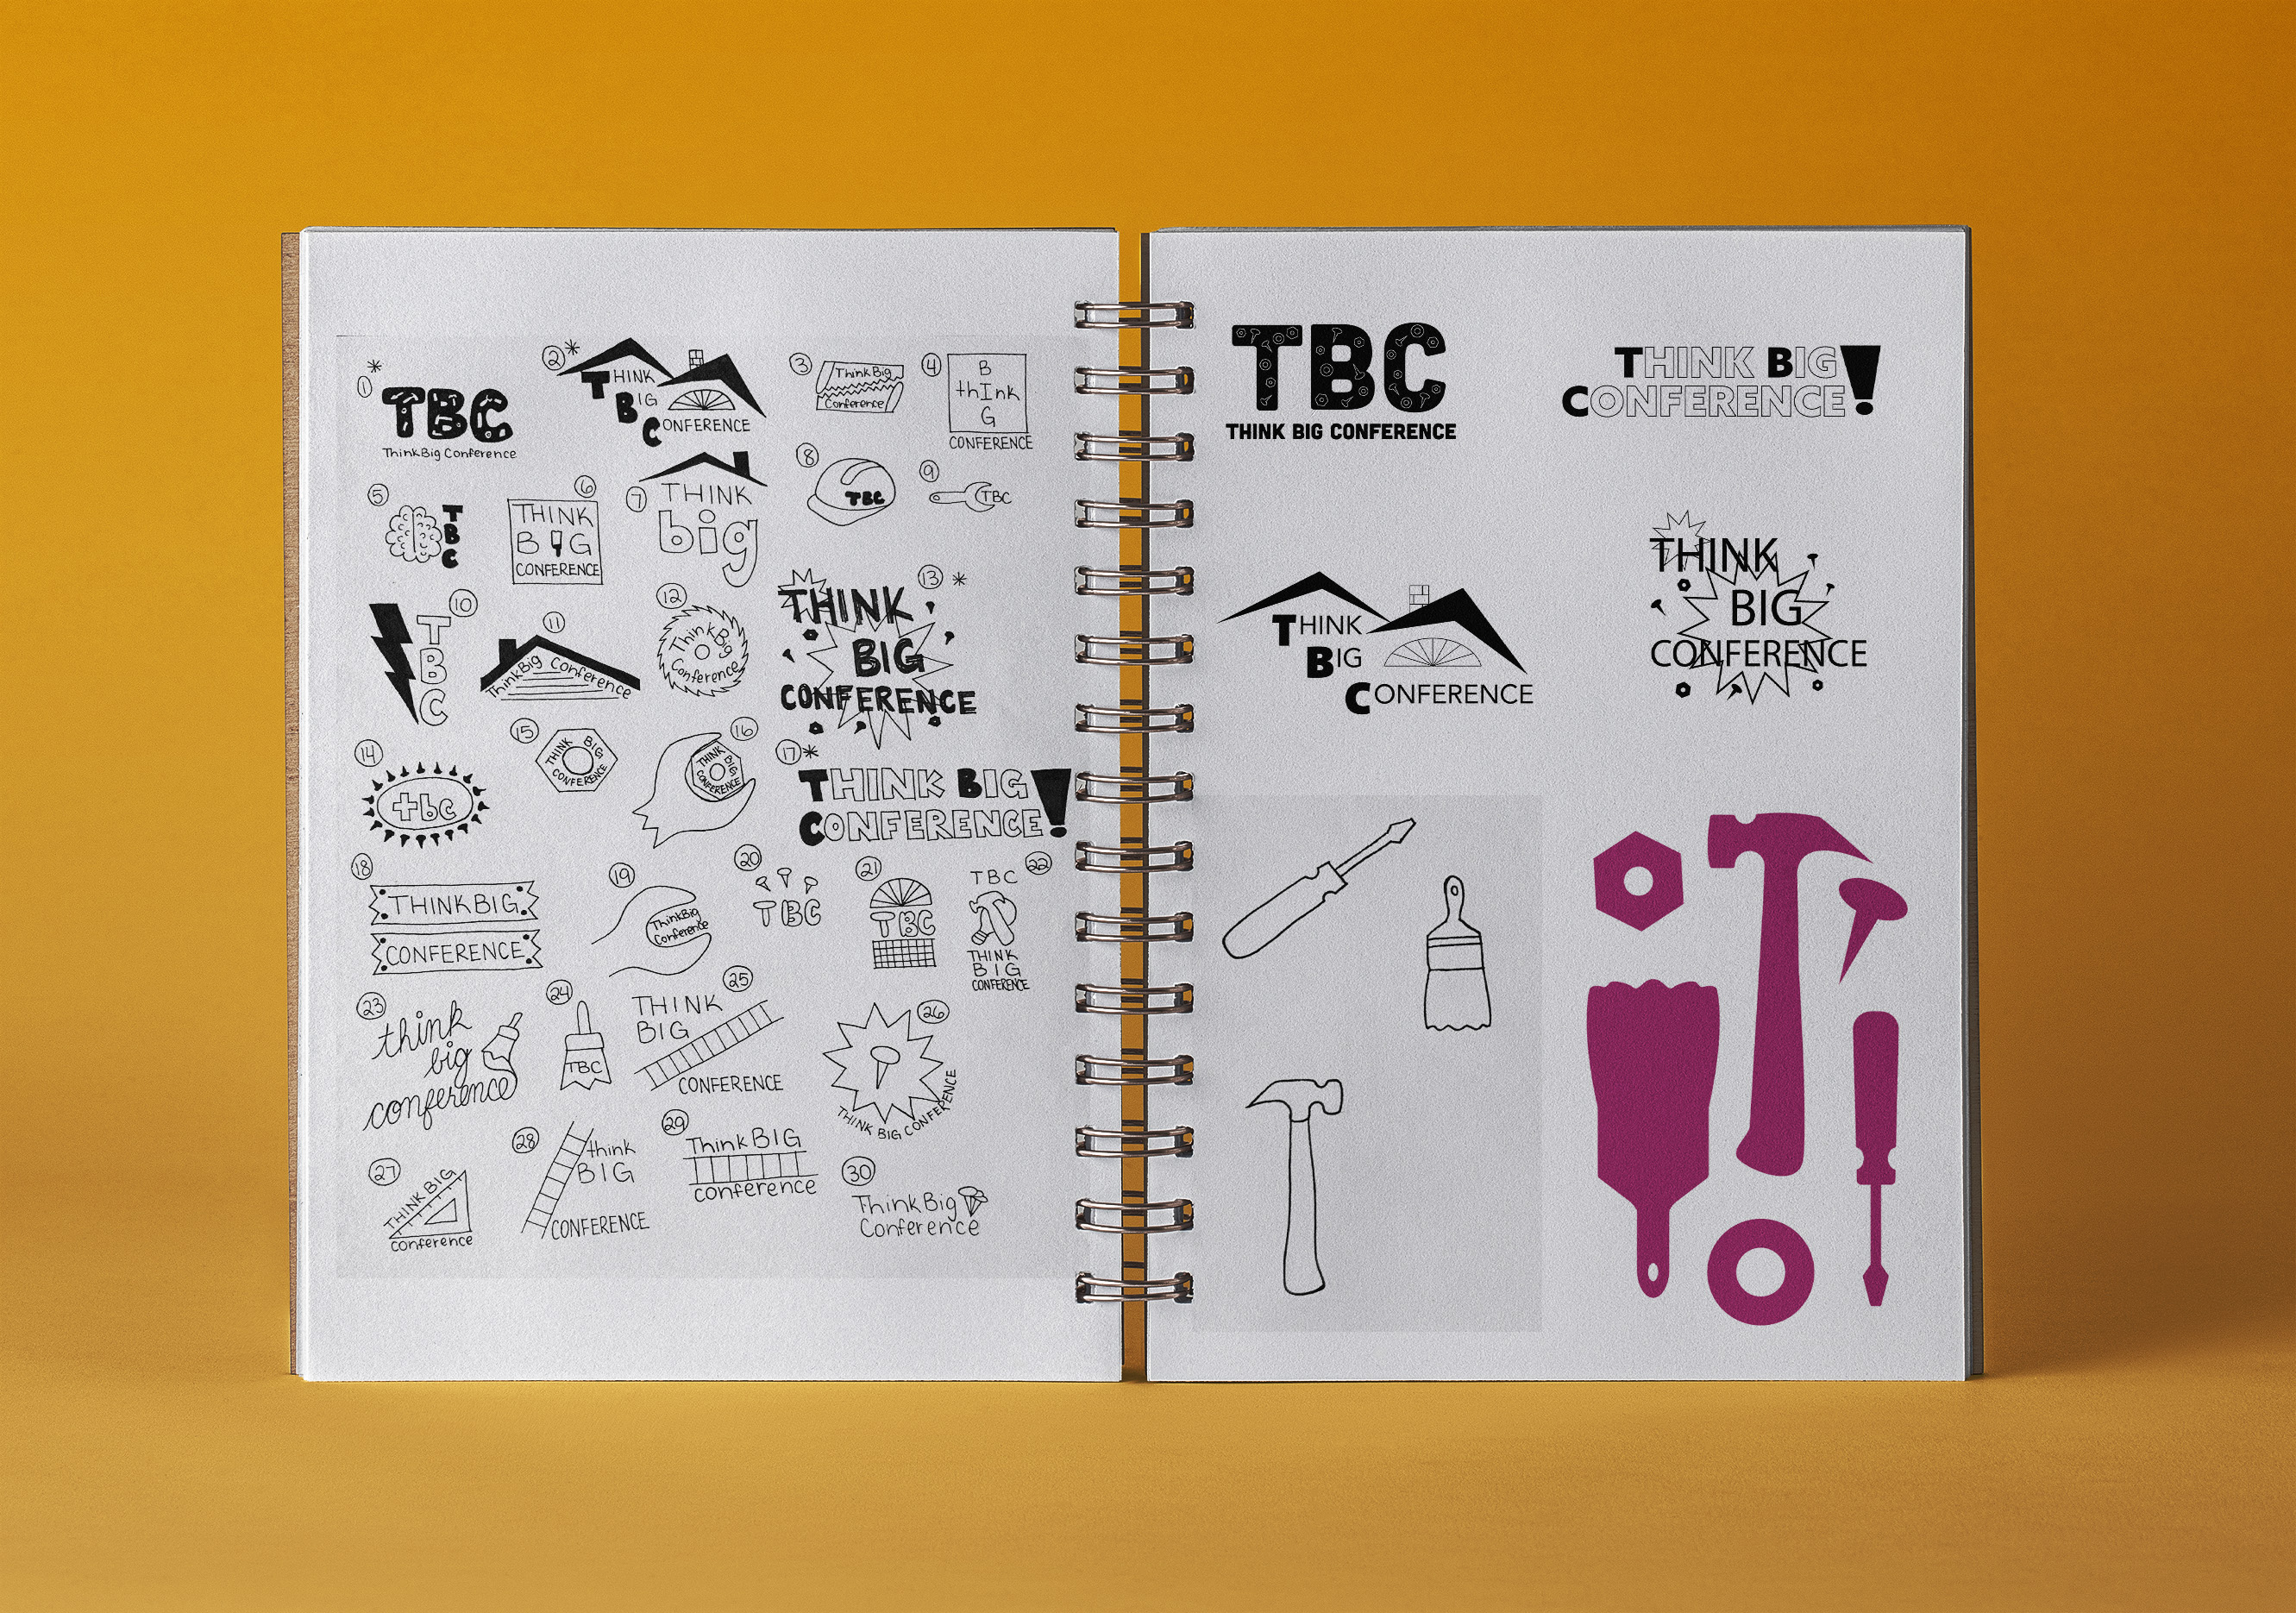 1*
TBC
ThinkBig Conference
2*
THINK
BIG
CONFERENCE
3
ThinkBig
Conference
4
B
thInk
G
CONFERENCE
5
T
B
C
6
THINK
BIG
CONFERENCE
7
THINK
big
8
TBC
9
TBC
10
T
B
C
11
ThinkBig Conference
12
ThinkBig
Conference
13 *
THINK
BIG
CONFERENCE
14
tbc
15
THINK BIG
CONFERENCE
16
THINK BIG
CONFERENCE
17*
THINK BIG
CONFERENCE!
18
THINKBIG
CONFERENCE
19
ThinkBig
Conference
20
TBC
21
TBC
22
TBC
THINK
BIG
CONFERENCE
23
think
big
conference
24
TBC
25
THINK
BIG
CONFERENCE
26
THINK BIG CONFERENCE
27
THINK BIG
conference
28
think
BIG
CONFERENCE
29
Think BIG
conference
30
Think Big
Conference
TBC
THINK BIG CONFERENCE
THINK BIG
CONFERENCE!
THINK
BIG
CONFERENCE
THINK
BIG
CONFERENCE